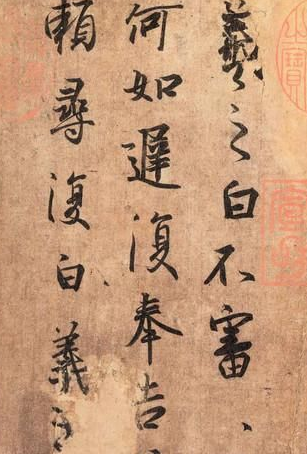 羲之白不審
何如遲復奉告
賴尋復白羲之